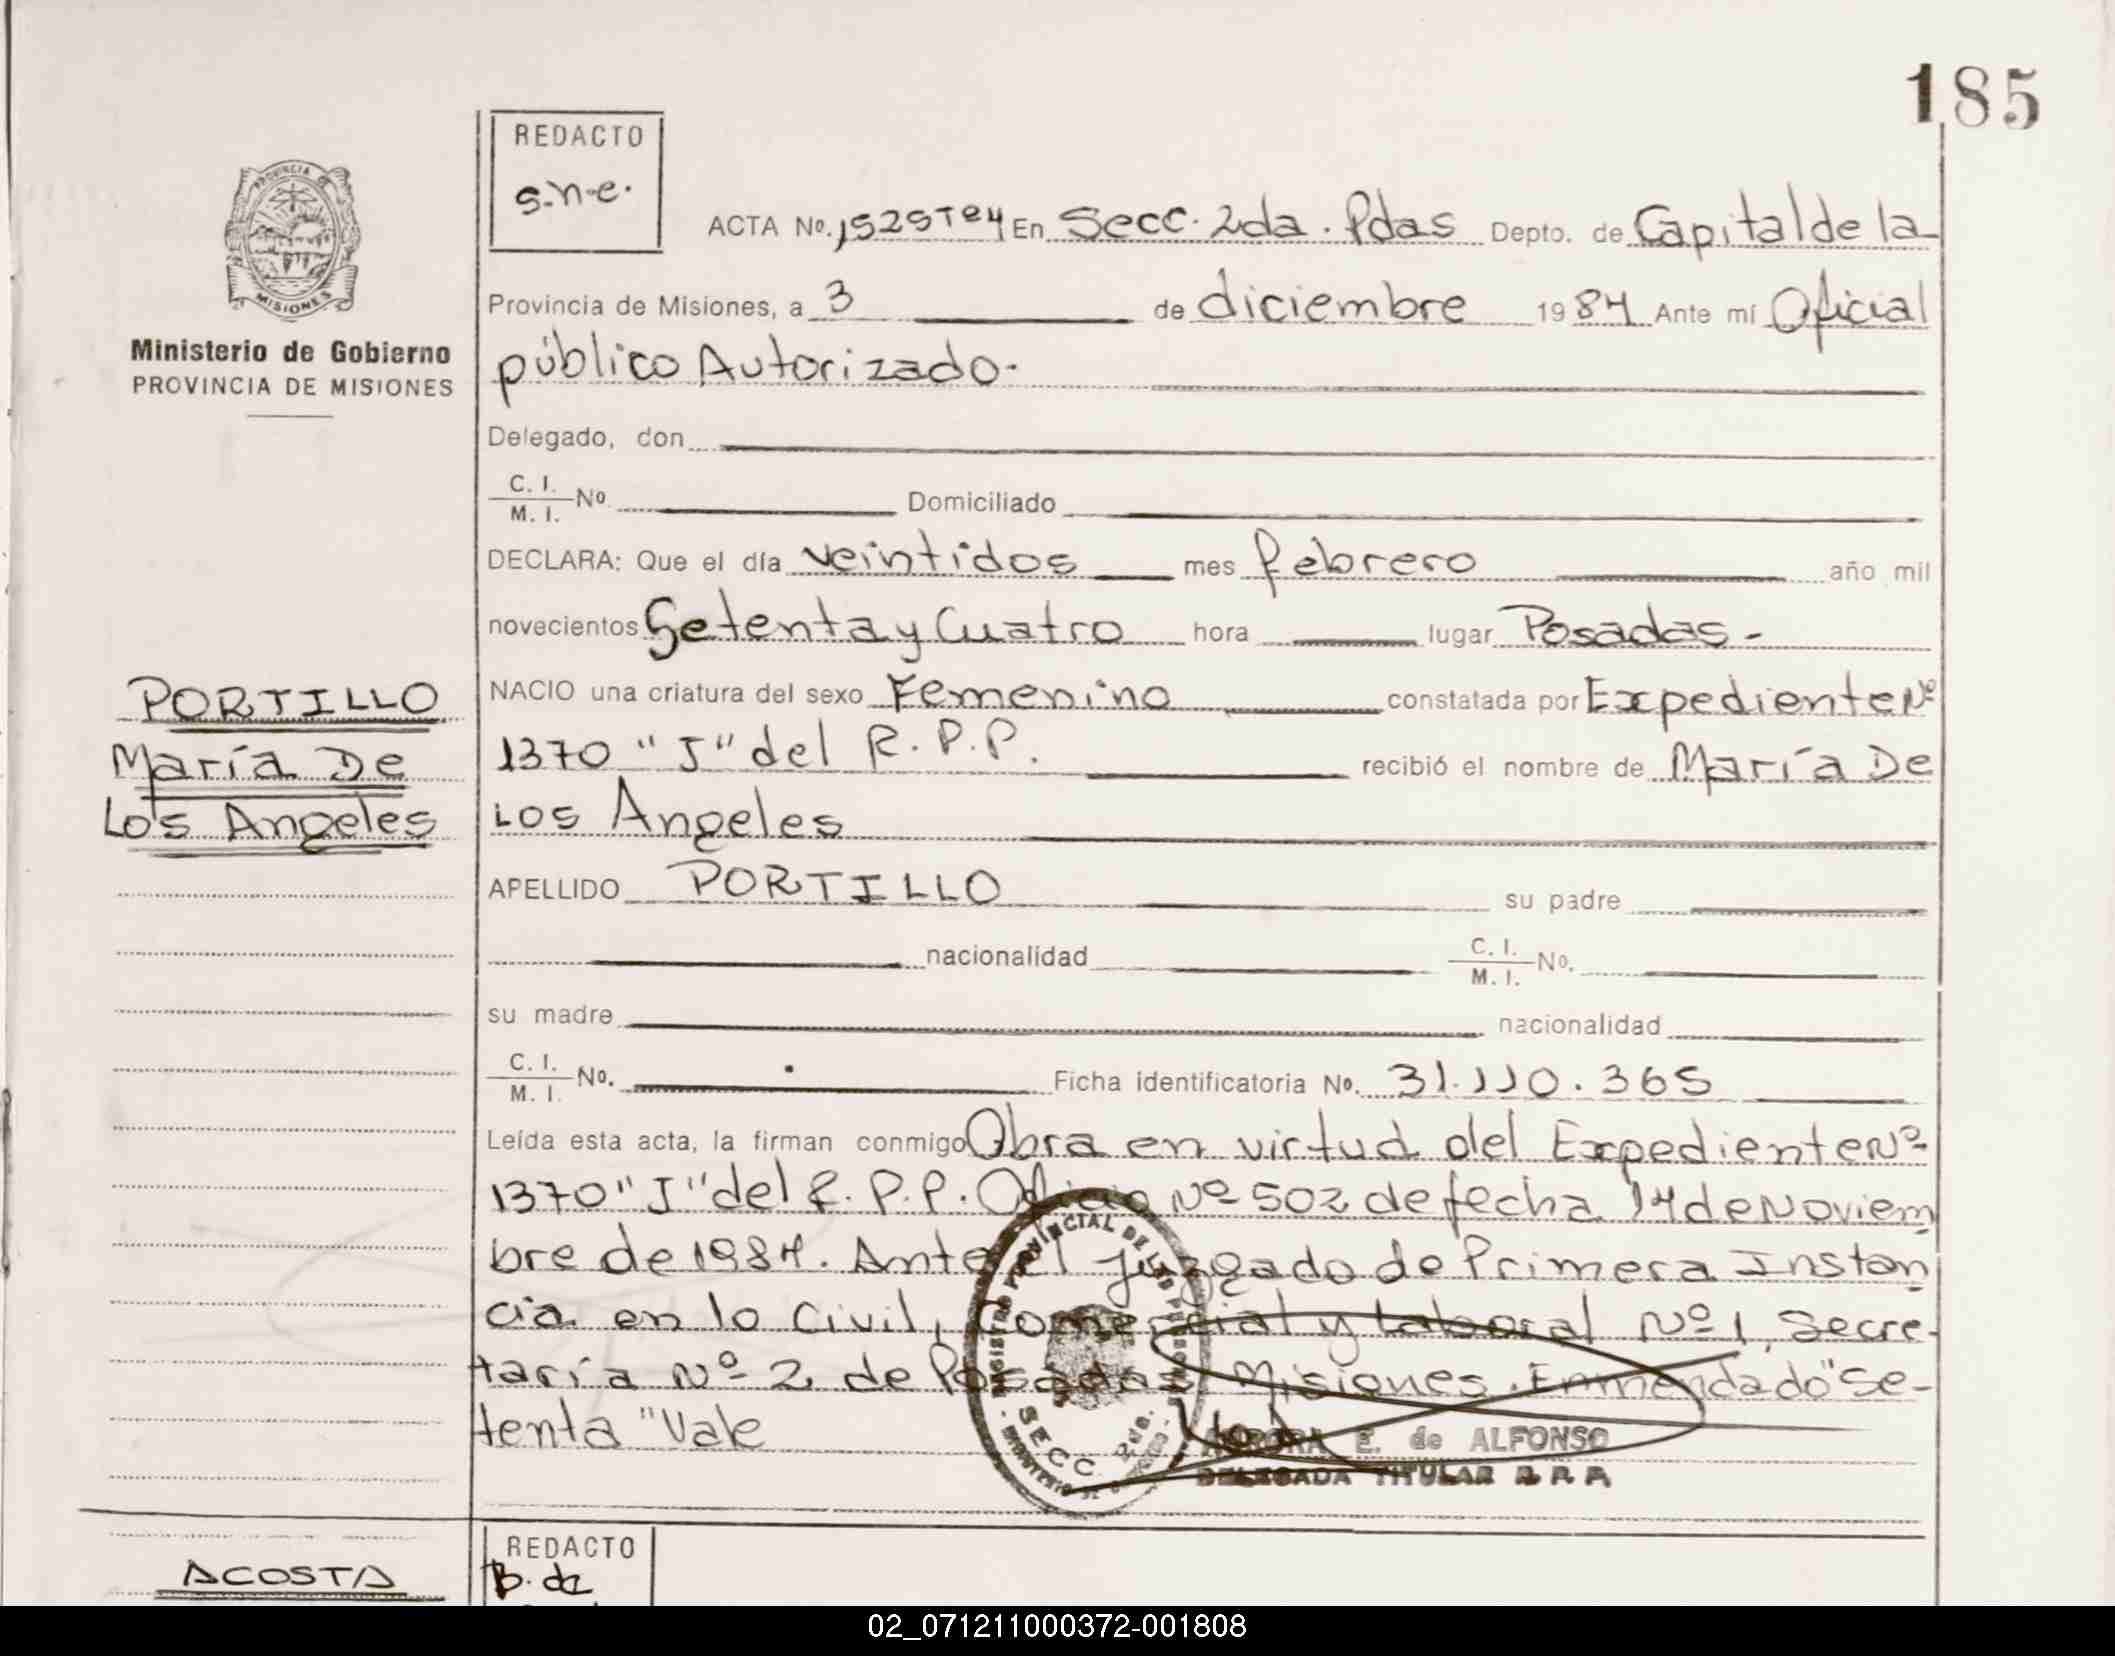 185
REDACTO
s.n.e.
PROVINCIA DE
MISIONES
Ministerio de Gobierno
PROVINCIA DE MISIONES
ACTA No. En Secc. 2da. Pdas Depto. de Capital de la
Provincia de Misiones, a 3 de diciembre 1984 Ante mí Oficial
público Autorizado.
Delegado, don
C. I.
M. I. No. Domiciliado
DECLARA: Que el día veintidos mes febrero año mil
novecientos Setenta y Cuatro hora lugar Posadas-
NACIO una criatura del sexo Femenino constatada por Expediente Nº
1370 "J" del R.P.P. recibió el nombre de María De
Los Angeles
PORTILLO
María De
Los Angeles
APELLIDO PORTILLO su padre
nacionalidad C. I.
M. I. No.
su madre nacionalidad
C. I.
M. I. No. Ficha identificatoria No. 31.110.365
Leída esta acta, la firman conmigo Obra en virtud del Expediente Nº
1370 "J" del R.P.P. Oficio Nº 502 de fecha 14 de Noviem
bre de 1984. Ante el Juzgado de Primera Instan
cia en lo Civil, Comercial y Laboral Nº 1, Secre-
taría Nº 2 de Posadas Misiones. Enmendado "Se-
tenta" Vale
REGISTRO PROVINCIAL DE LAS
SECC. 2da.
AURORA E. de ALFONSO
DELEGADA TITULAR R P P
ACOSTA
REDACTO
B. de
02_071211000372-001808